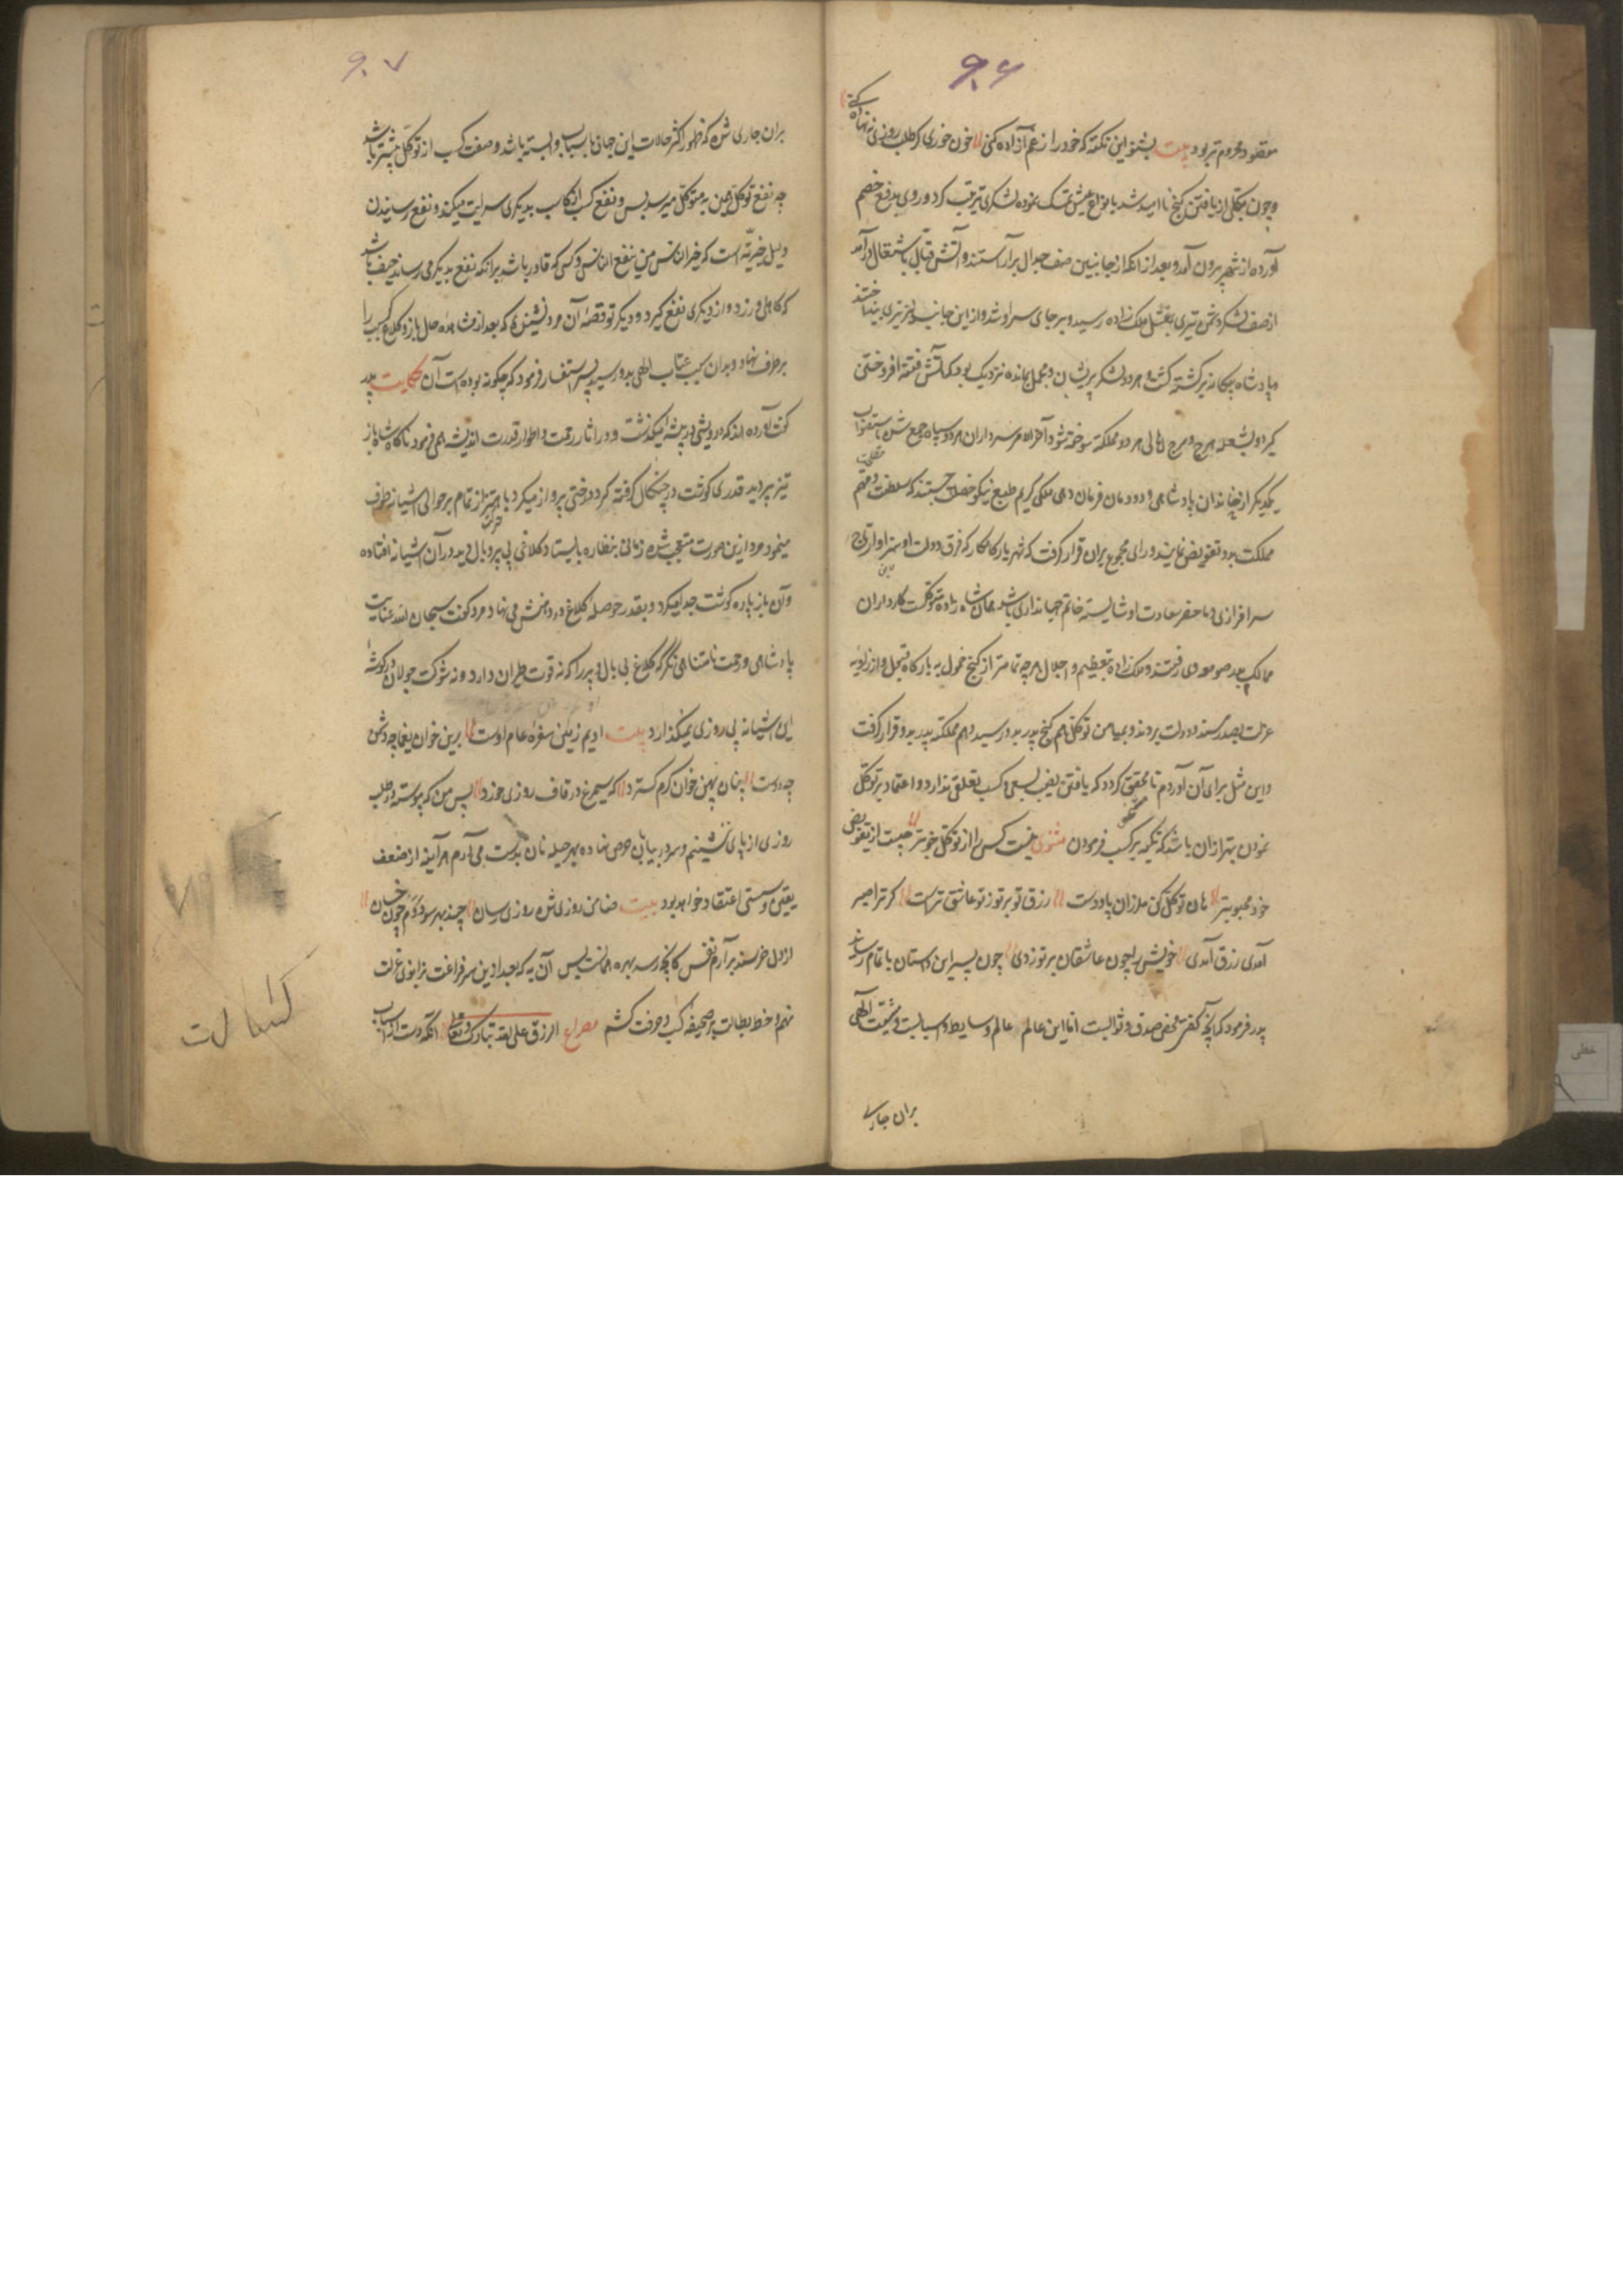 ۹۰۶
مقصود محروم تر بود بیت بشنو این نکته که خود را ز غم آزاده کنی خون خوری گر طلب روزی ننهاده کنی
وچون بکلی از یافتن کنج ناامید شد نموده لشکری ترتیب کرد و روی بدفع خصم
آورده از شهر بیرون آمد و بعد از انکه از جانبین صف جدال برآراستند و آتش قتال باشتعال درآمد
از صف لشکر دشمن تیری بمقتل ملک زاده رسید و بر جای سرد شد و از این جانب نیز تیری بینداختند
و پادشاه بیکانه نیز کشته کشت و هر دو لشکر پریشان و مهمل بمانده نزدیک بود که آتش فتنه افروختن
کیرد و بشعله هرج و مرج اهالی هر دو مملکت سوخته شود آخر الامر سرداران هر دو سپاه جمع شده باستصواب
یکدیکر از خاندان پادشاهی و دودمان فرمان دهی ملکی کریم طبع نیکو خصلت جستند که سلطنت و مهم
مملکت بدو تفویض نمایند و رای مجموع بران قرار کرفت که شهریار کامکار که فرق دولت او سزاوار تاج
سرافرازی و خنصر سعادت او شایسته خاتم جهانداری باشد همان شاه زاده متوکلست کارداران
ممالک بدر صومعه وی رفتند و ملک زاده را بتعظیم و اجلال هرچه تمامتر از کنج خمول به بارکاه قبول و از زاویه
عزلت بصدر مسند دولت بردند و بمیامن توکل هم کنج پدر بدو رسید و هم مملکت پدر بدو قرار کرفت
و این مثل برای آن آوردم تا محقق کردد که یافتن نصیب بسعی و کسب تعلق ندارد و اعتماد بر توکل
نمودن بهتر ازان باشد که تکیه بر کسب فرمودن مثنوی نیست کسبی از توکل خوبتر چیست از تفویض
خود محبوبتر هان توکل کن ملرزان پا و دست رزق تو بر تو ز تو عاشق تر است کر ترا صبر
آمدی رزق آمدی خویش را چون عاشقان بر تو زدی چون پسر این داستان باتمام رساند
پدر فرمود که آنچه کفتی محض صدق و ثوابست اما این عالم عالم وسایط و اسبابست و مشیت الهی
بران جاری
۹۰۷
بران جاری شده که ظهور اکثر حالات این جهانی باسباب وابسته باشد و صفت کسب از توکل بیشتر باشد
چه نفع توکل همین به متوکل میرسد و بس و نفع کسب از کاسب بدیکری سرایت میکند و نفع رسانیدن
دلیل خیریّه است که خیر الناس من ینفع الناس و کسی که قادر باشد برانکه نفع بدیکری رساند حیف باشد
که کاهلی ورزد و از دیکری نفع کیرد و دیکر تو قصه آن مرد نشنیدی که بعد از مشاهده حال باز و کلاغ کسب را
بر طرف نهاد و بدان سبب عتاب الهی بدو رسید پسر استفسار فرمود که چکونه بوده است آن حکایت پدر
کفت آورده اند که درویشی در بیشه میکذشت و در اثار رحمت و اطوار قدرت اندیشه می فرمود ناکاه شاه باز
تیز پر دید قدری کوشت در چنکال کرفته کرد درختی پرواز میکرد و باهتزاز تمام بر حوالی اشیانه طوف
مینمود مرد ازین صورت متعجب شده زمانی بنظاره بایستاد کلاغی بی پر و بال دید در آن اشیانه افتاده
و آن باز پاره کوشت جدا میکرد و بقدر حوصله کلاغ در دهنش می نهاد مرد کفت سبحان الله عنایت
پادشاهی و رحمت نامتناهی نکر که کلاغ بی بال و پر را که نه قوت طیران دارد و نه شوکت جولان در کوشه
این اشیانه بی روزی نمیکذارد بیت ادیم زمین سفره عام اوست برین خوان یغما چه دشمن
چه دوست چنان پهن خوان کرم کسترد که سیمرغ در قاف روزی خورد پس من که پیوسته در طلب
روزی از پای ننشینم و سر در بیابان حرص نهاده بهر حیله نان بدست می آرم هر آینه از ضعف
یقین و سستی اعتقاد خواهد بود بیت ضامن روزی شده روزی رسان چند بهر سو دوم چون خسان
از دل خرسند برآرم نفس کانچه رسد بهره همانست بس آن به که بعد ازین سر فراغت بزانوی عزلت
نهم و خط بطالت بر صحیفه کسب و حرفت کشم مصراع الرزق علی الله تبارک و تعالی انکه دست از اسباب